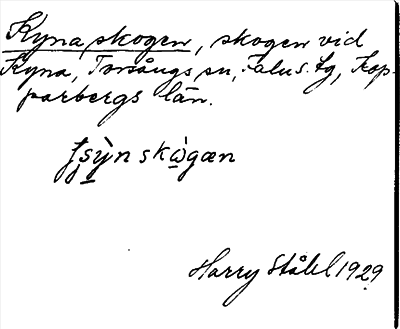 Kyna skogen, skogen vid
Kyna, Torsångs sn, Falu s. tg, Kop-
parbergs län.
ʈʂỳn skọ̀gæn
Harry Ståhl 1929